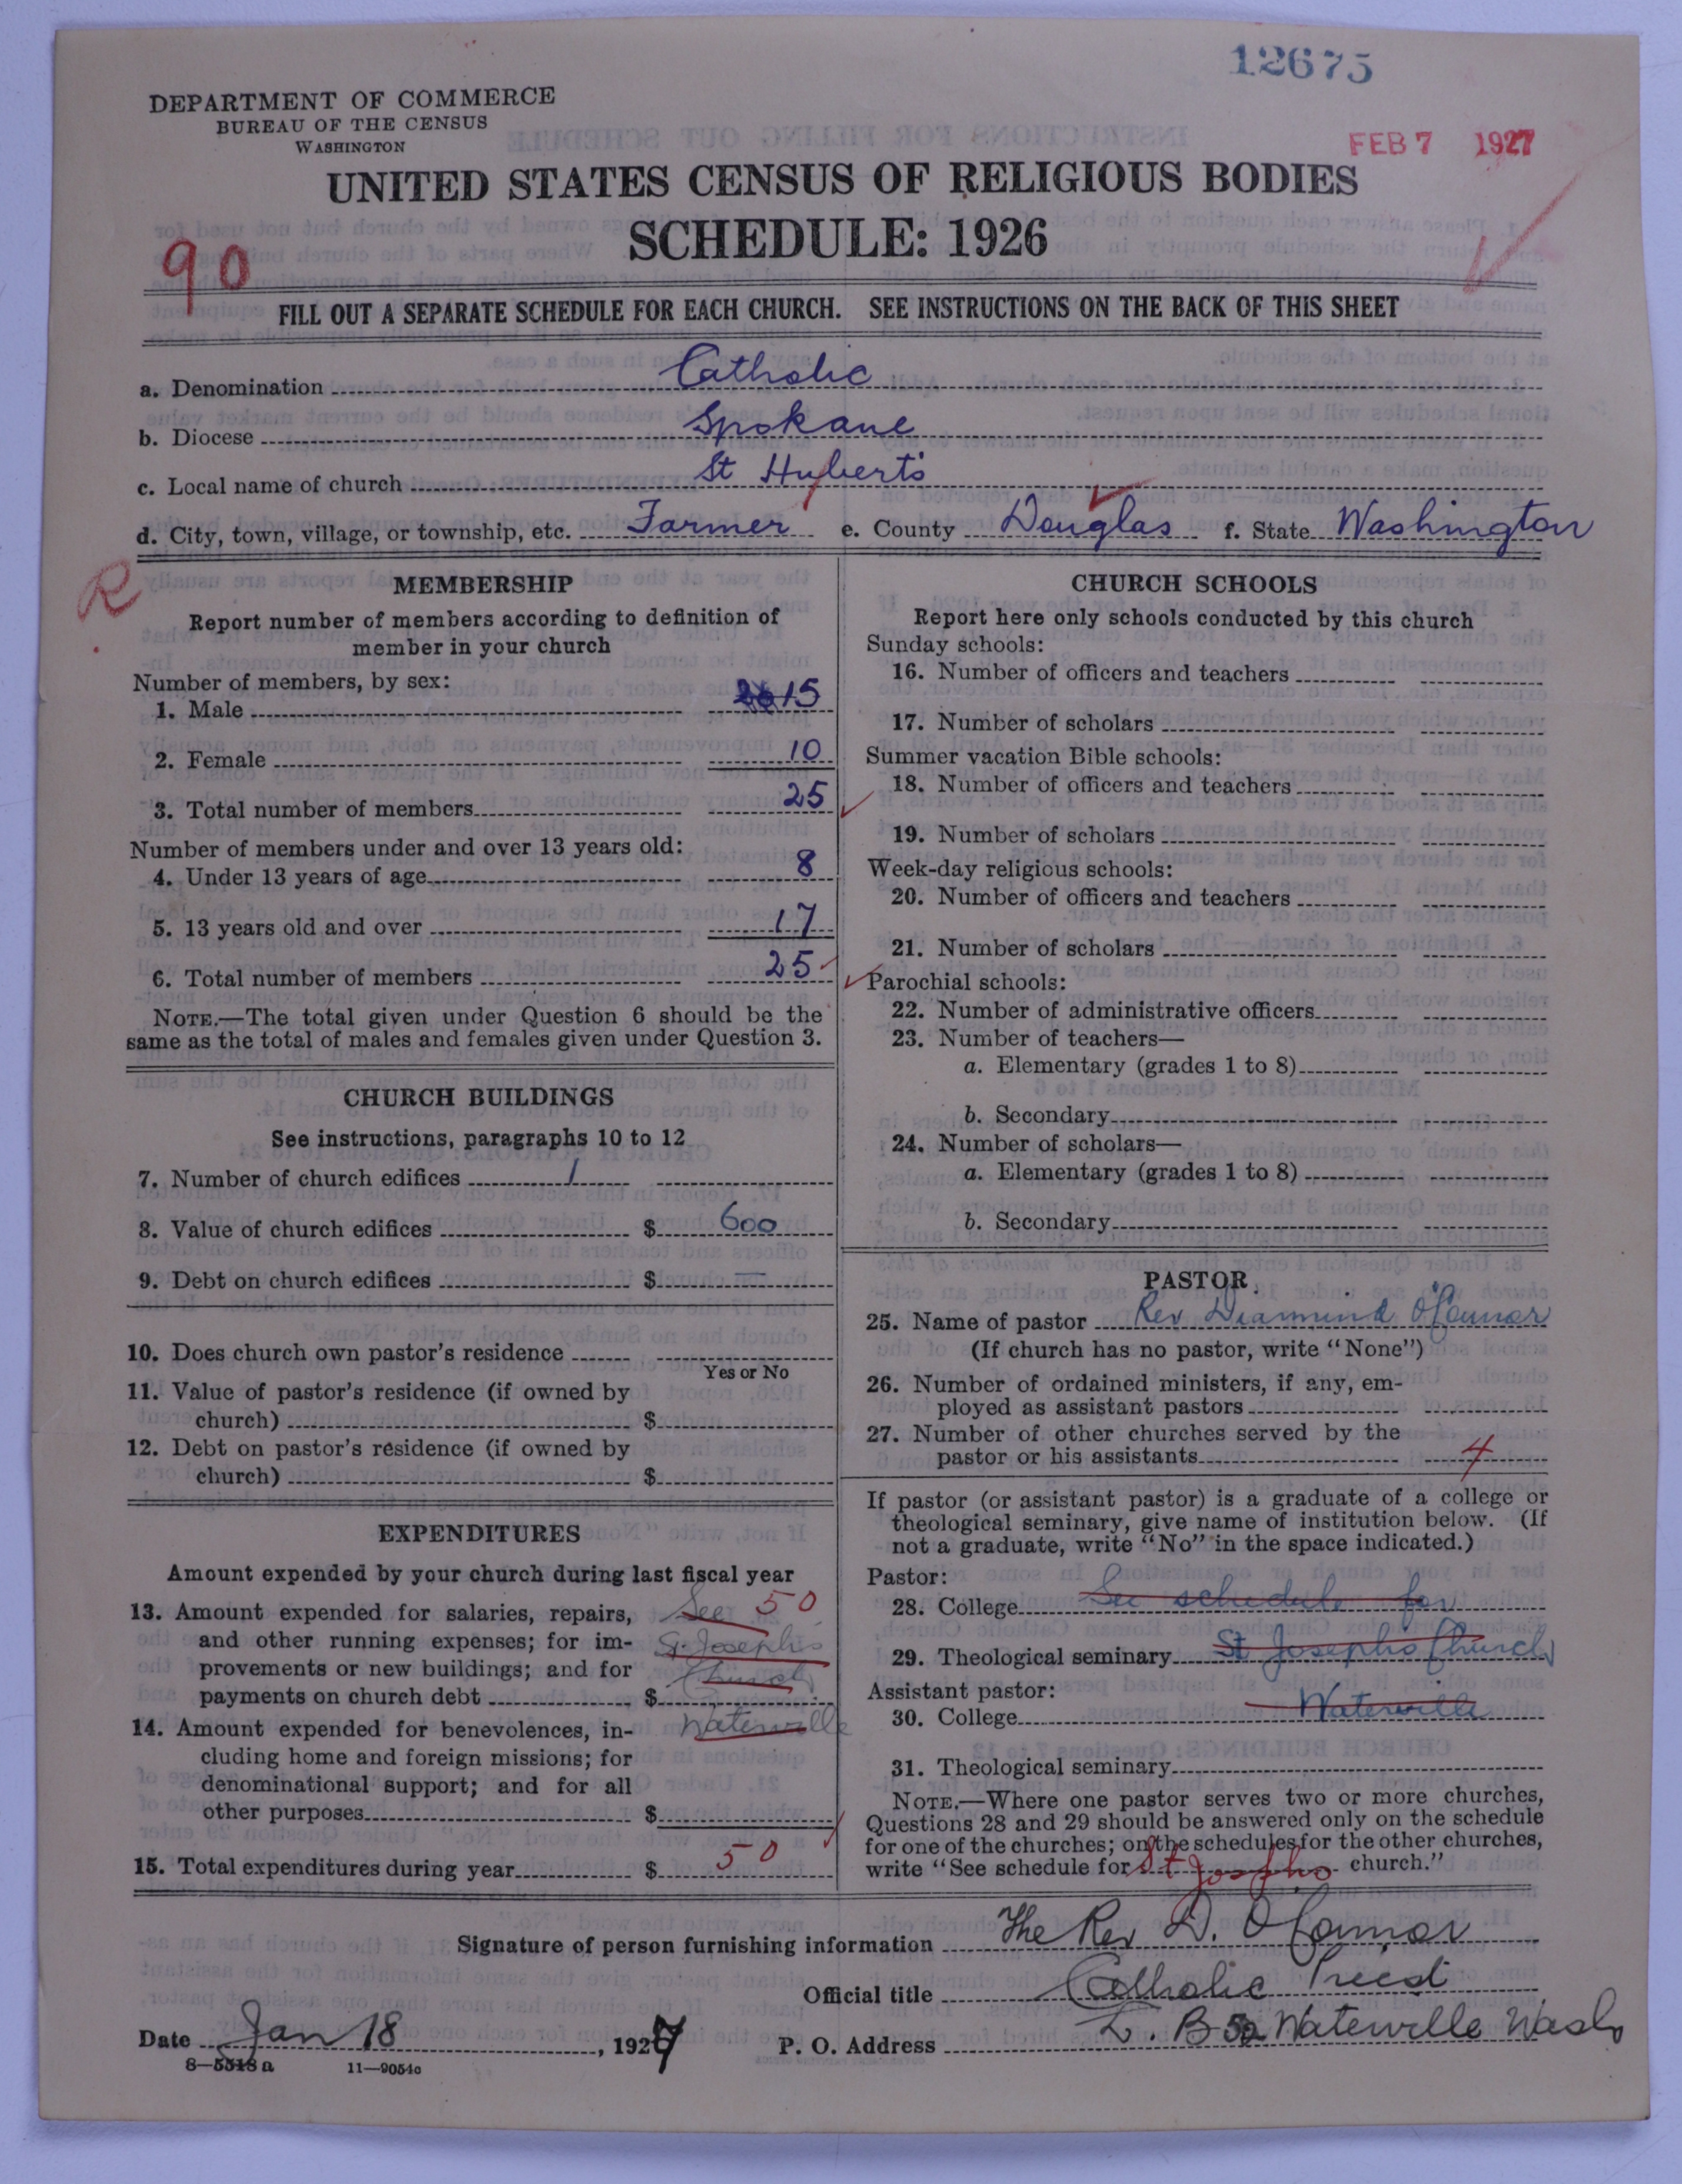 12675
DEPARTMENT OF COMMERCE
BUREAU OF THE CENSUS
WASHINGTON
FEB 7 1927
UNITED STATES CENSUS OF RELIGIOUS BODIES
SCHEDULE: 1926
90
FILL OUT A SEPARATE SCHEDULE FOR EACH CHURCH. SEE INSTRUCTIONS ON THE BACK OF THIS SHEET
a. Denomination Catholic
b. Diocese Spokane
c. Local name of church St Huberts
d. City, town, village, or township, etc. Farmer e. County Douglas f. State Washington
R
MEMBERSHIP
Report number of members according to definition of
member in your church
Number of members, by sex:
1. Male 15
2. Female 10
3. Total number of members 25
Number of members under and over 13 years old:
4. Under 13 years of age 8
5. 13 years old and over 17
6. Total number of members 25
NOTE.—The total given under Question 6 should be the
same as the total of males and females given under Question 3.
CHURCH BUILDINGS
See instructions, paragraphs 10 to 12
7. Number of church edifices 1
8. Value of church edifices $ 600
9. Debt on church edifices $ —
10. Does church own pastor's residence
Yes or No
11. Value of pastor's residence (if owned by
church) $
12. Debt on pastor's residence (if owned by
church) $
EXPENDITURES
Amount expended by your church during last fiscal year
13. Amount expended for salaries, repairs, See 50
and other running expenses; for im- St. Josephs
provements or new buildings; and for Church
payments on church debt $
14. Amount expended for benevolences, in- Waterville
cluding home and foreign missions; for
denominational support; and for all
other purposes $
15. Total expenditures during year $ 50
CHURCH SCHOOLS
Report here only schools conducted by this church
Sunday schools:
16. Number of officers and teachers
17. Number of scholars
Summer vacation Bible schools:
18. Number of officers and teachers
19. Number of scholars
Week-day religious schools:
20. Number of officers and teachers
21. Number of scholars
Parochial schools:
22. Number of administrative officers
23. Number of teachers—
a. Elementary (grades 1 to 8)
b. Secondary
24. Number of scholars—
a. Elementary (grades 1 to 8)
b. Secondary
PASTOR
25. Name of pastor Rev Diamund O'Connor
(If church has no pastor, write "None")
26. Number of ordained ministers, if any, em-
ployed as assistant pastors
27. Number of other churches served by the
pastor or his assistants 4
If pastor (or assistant pastor) is a graduate of a college or
theological seminary, give name of institution below. (If
not a graduate, write "No" in the space indicated.)
Pastor:
28. College See schedule for
29. Theological seminary St Josephs Church
Assistant pastor:
30. College Waterville
31. Theological seminary
NOTE.—Where one pastor serves two or more churches,
Questions 28 and 29 should be answered only on the schedule
for one of the churches; on the schedules for the other churches,
write "See schedule for St Josephs church."
Signature of person furnishing information The Rev D. O'Connor
Official title Catholic Priest
Date Jan 18, 1927 P. O. Address L. B 52 Waterville Wash
8—5518 a 11—9054c